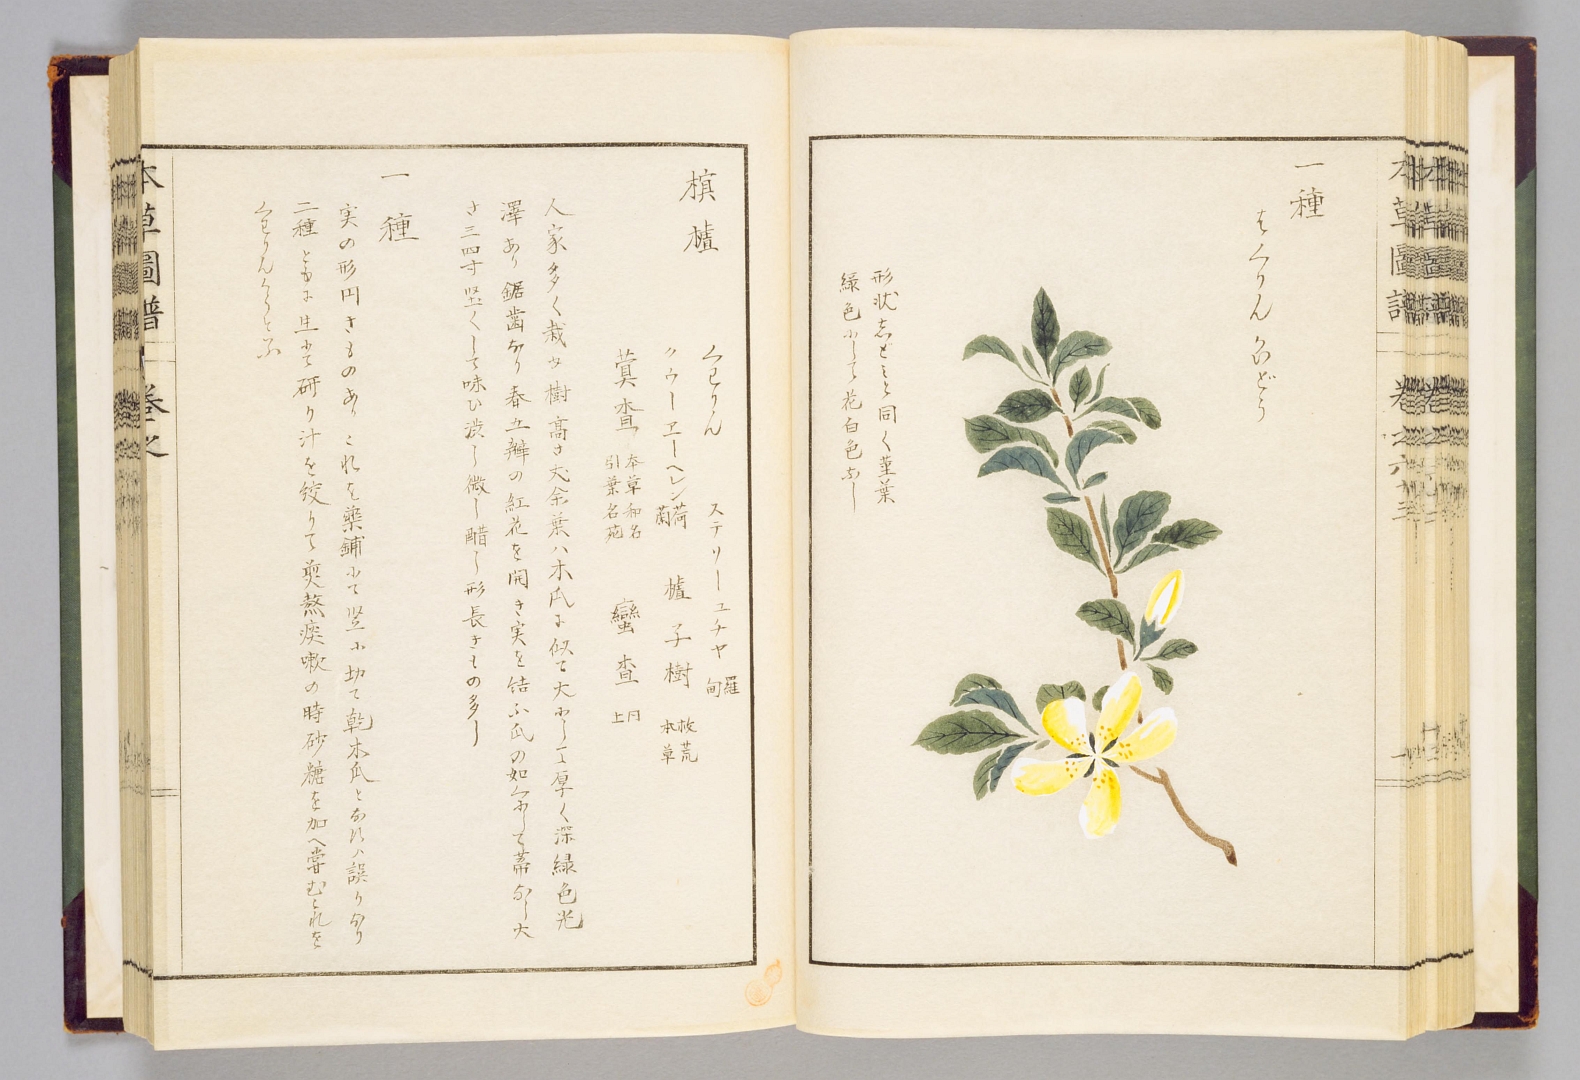 一種
形状志どみと同く莖葉
緑色にして花白色なり
榠樝
くわりん
ステリーユチヤ 羅甸
クウーヱーヘレン 荷蘭
樝子樹 救荒本草
蓂楂 本草和名引葉名苑
蠻楂 同上
人家多く栽ゆ樹高さ丈余葉ハ木瓜に似て大にして厚く深緑色光
澤あり鋸歯なり春五瓣の紅花を開き実を結ふ瓜の如くにして蒂なし大
さ三四寸堅くして味ひ渋し微し醋し形長きもの多し
一種
実の形円きものあり これを藥鋪にて竪に切て乾木瓜となすハ誤りなり
二種ともに生にて研り汁を絞りて煎熬痰嗽の時砂糖を加へ嘗むこれを
くわりんたうと云
本草圖譜